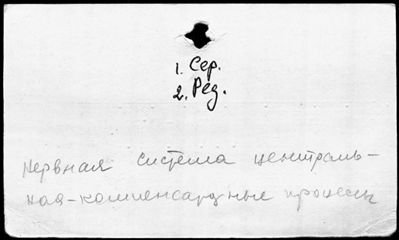 1. Сер.
2. Рез.
нервная система централь-
ная-компенсарзные процессы